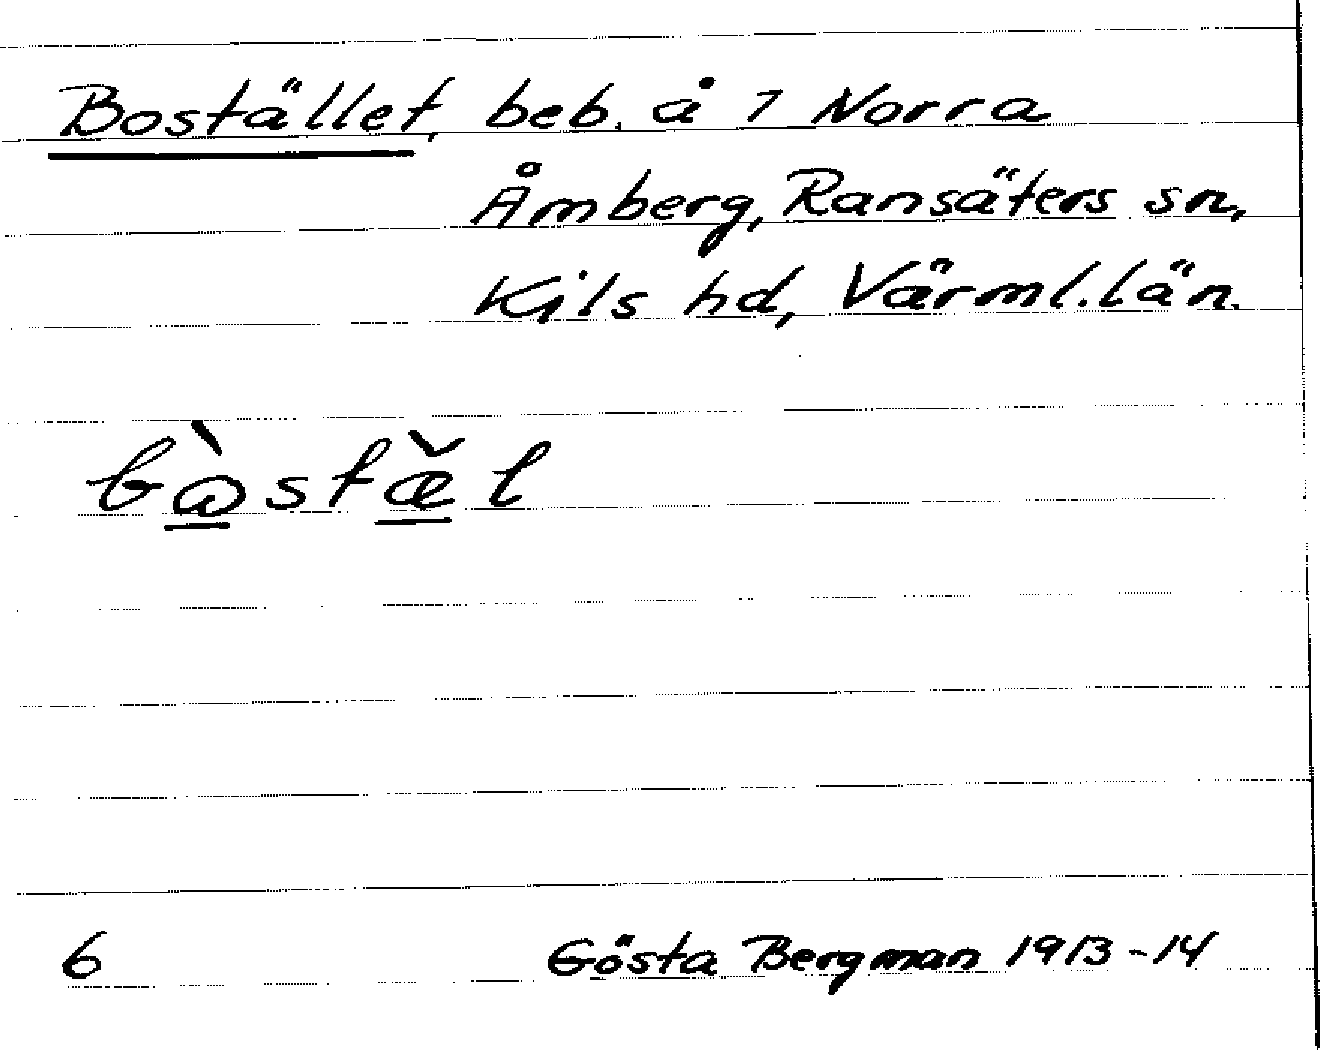 Bostället, beb. å 1 Norra
Åmberg, Ransäters sn,
Kils hd, Värml. län.
bὼstæ̌l
6 Gösta Bergman 1913-14